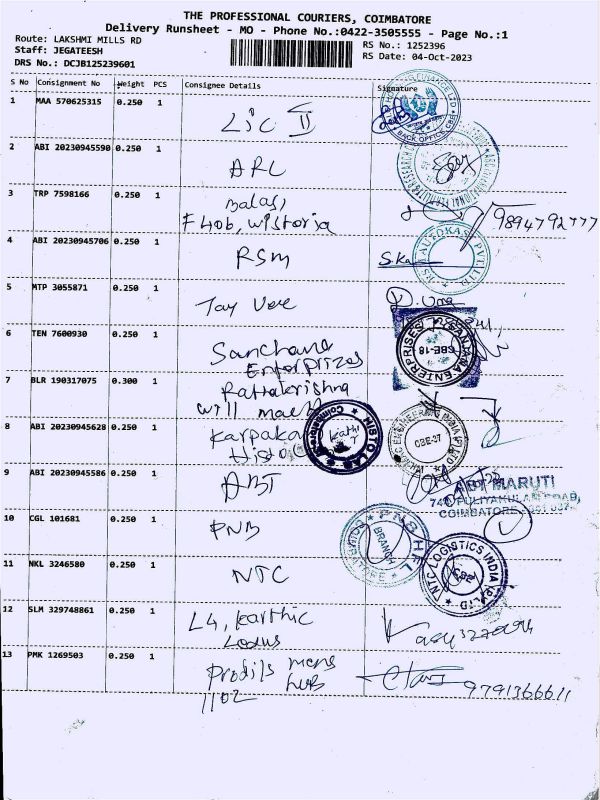 THE PROFESSIONAL COURIERS, COIMBATORE
Delivery Runsheet - MO - Phone No.:0422-3505555 - Page No.:1
Route: LAKSHMI MILLS RD
RS No.: 1252396
Staff: JEGATEESH
RS Date: 04-Oct-2023
DRS No.: DCJB125239601
S No Consignment No Weight PCS Consignee Details Signature
1 MAA 570625315 0.250 1 LIC II
BACK OFFICE CBE
2 ABI 20230945590 0.250 1 ARC
3 TRP 7598166 0.250 1 Balaji,
F406, wistoria 9894792777
4 ABI 20230945706 0.250 1 RSM S.Ka
5 MTP 3055871 0.250 1 Tay Vere D. Uma
6 TEN 7600930 0.250 1 Sanchana
Enterprizes
SANJANA ENTERPRISES CBE-18
7 BLR 190317075 0.300 1 Rattakrishna
will
8 ABI 20230945628 0.250 1 Karpaka
Histo
HISTO LAB Coimbatore
CBE-37
9 ABI 20230945586 0.250 1 ABT
ABT MARUTI
COIMBATORE
10 CGL 101681 0.250 1 PNB
PNBHFL BRANCH COIMBATORE
11 NKL 3246580 0.250 1 NTC
NTC LOGISTICS INDIA (P) LTD CBE
12 SLM 329748861 0.250 1 L4, Karthic
13 PMK 1269503 0.250 1 Prodils mens
hub
1102 9791366611